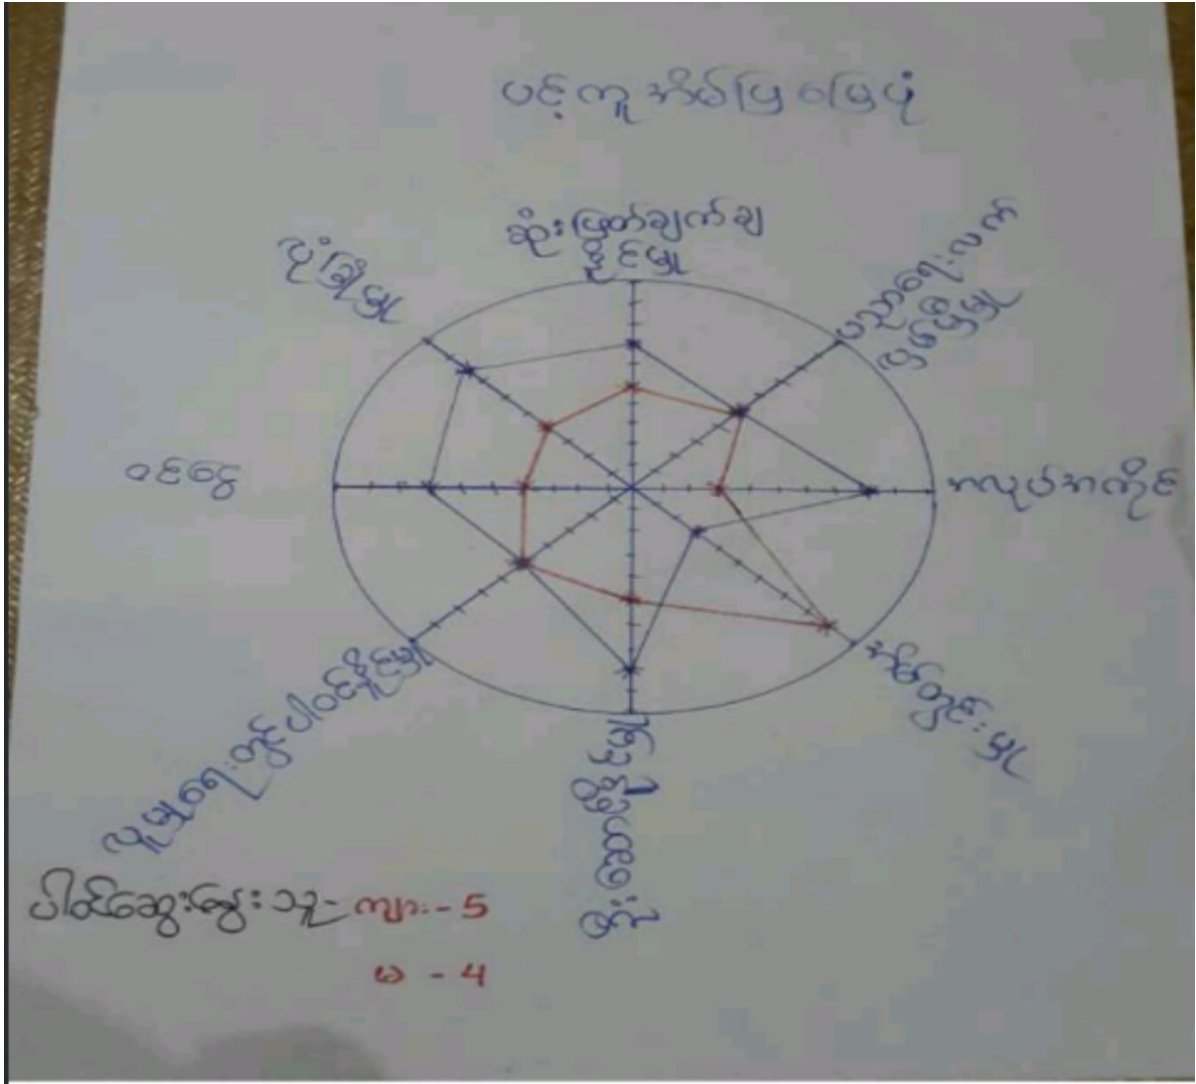 ပင့်ကူအိမ်ပြမြေပုံ
ဆုံးဖြတ်ချက်ချ
နိုင်မှု
ပညာရေးလက်
လှမ်းမှီမှု
အလုပ်အကိုင်
အိမ်တွင်းမှု
လူမှုရေးတွင်ပါဝင်နိုင်မှု
ဝင်ငွေ
လုံခြုံမှု
ပါဝင်ဆွေးနွေးသူ- ကျား - 5
မ - 4